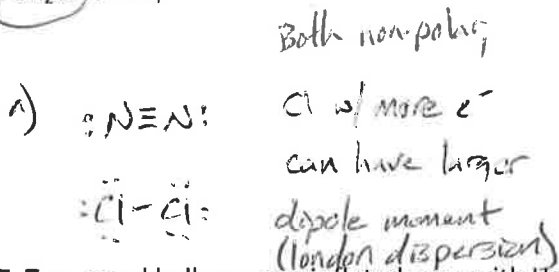 Both non-polar,
a) :N≡N: Cl w/ more e⁻
can have larger
:Cl–Cl: dipole moment
(london dispersion)